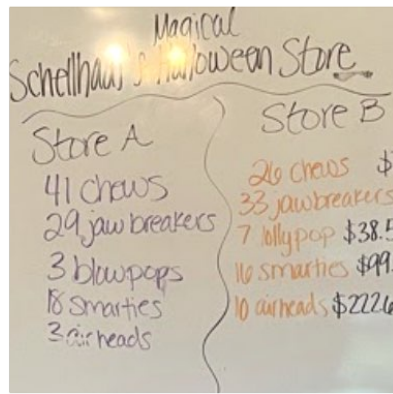 Magical
Schellhaas's Halloween Store
Store A
41 chews
29 jawbreakers
3 blowpops
18 smarties
3 airheads
Store B
26 chews $
33 jawbreakers
7 lollypop $38.5
16 smarties $99.
10 airheads $222.6